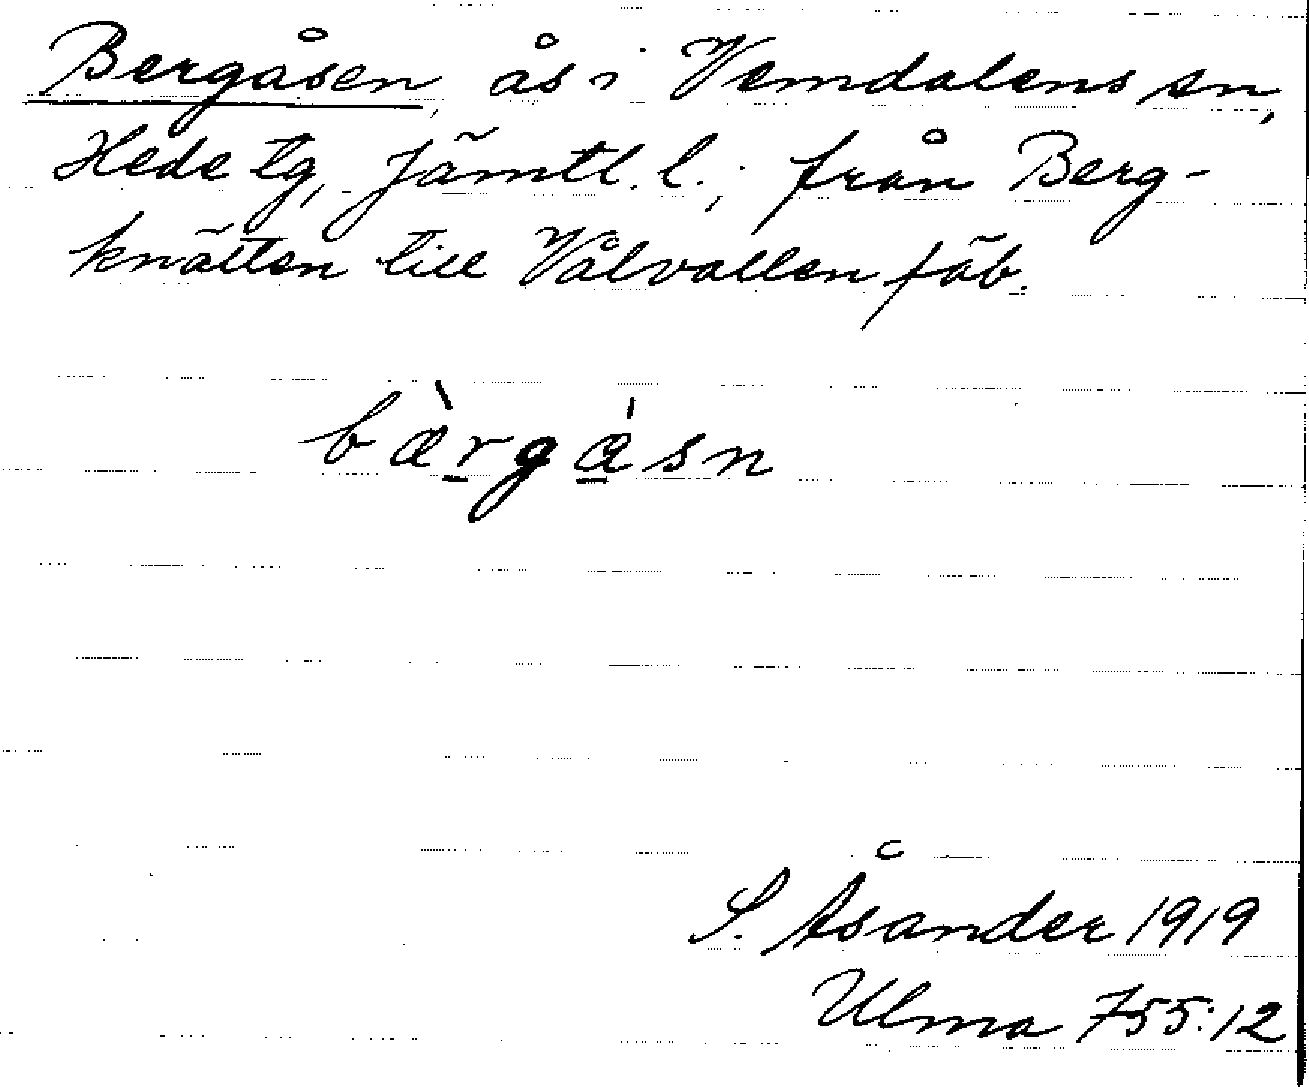 Bergåsen, ås i Vemdalens sn,
Hede tg, Jämtl. l.; från Berg-
knätten till Vålvallen fäb.
bæ̀rgásn
S. Åsander 1919
Ulma 755:12